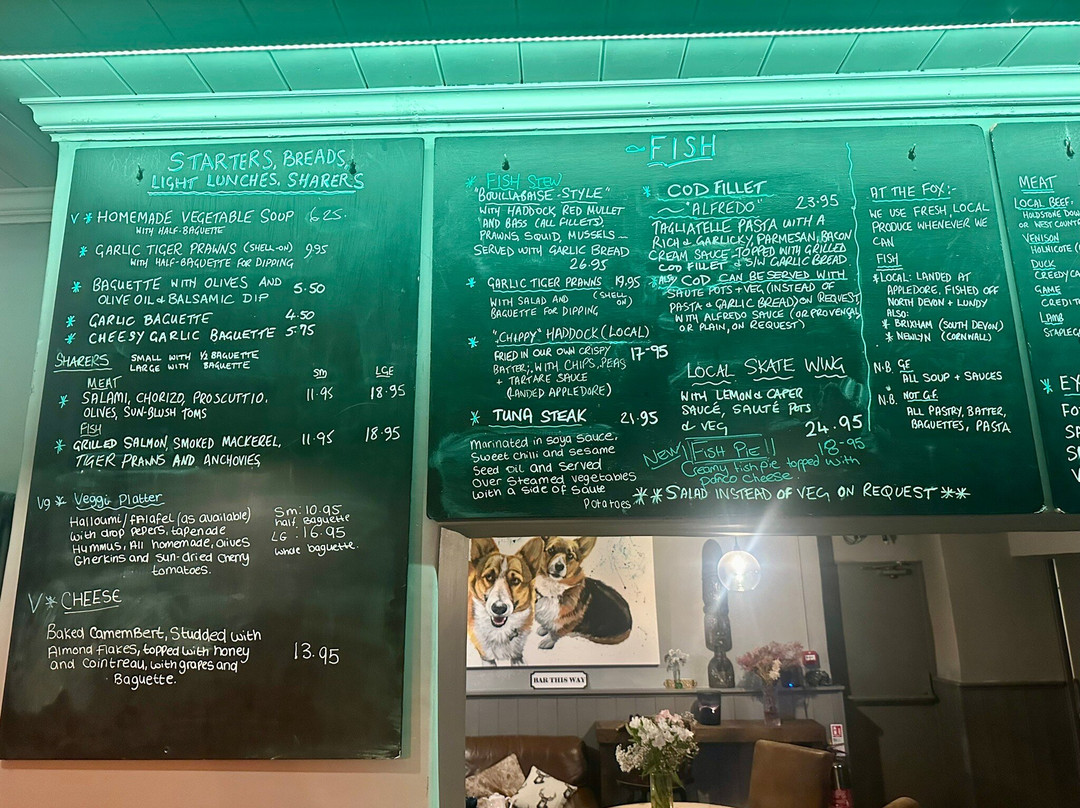 STARTERS, BREADS,
LIGHT LUNCHES, SHARERS
V * HOMEMADE VEGETABLE SOUP 6.25.
WITH HALF-BAGUETTE
* GARLIC TIGER PRAWNS (SHELL-ON) 9.95
WITH HALF-BAGUETTE FOR DIPPING
* BAGUETTE WITH OLIVES AND 5.50
OLIVE OIL & BALSAMIC DIP
* GARLIC BAGUETTE 4.50
* CHEESY GARLIC BAGUETTE 5.75
SHARERS SMALL WITH ½ BAGUETTE
LARGE WITH BAGUETTE
SM LGE
MEAT
* SALAMI, CHORIZO, PROSCUTTIO, 11.95 18.95
OLIVES, SUN-BLUSH TOMS
FISH
* GRILLED SALMON, SMOKED MACKEREL, 11.95 18.95
TIGER PRAWNS AND ANCHOVIES
Vg * Veggi Platter
Halloumi/falafel (as available) Sm: 10.95
with drop pepers, tapenade half Baguette
Hummus, All homemade, olives LG: 16.95
Gherkins and sun-dried cherry whole baguette.
tomatoes.
V * CHEESE
Baked Camembert, Studded with
Almond Flakes, topped with honey 13.95
and Cointreau, with grapes and
Baguette.
~FISH
* FISH STEW
"BOUILLABAISE-STYLE"
WITH HADDOCK, RED MULLET
AND BASS (ALL FILLETS)
PRAWNS, SQUID, MUSSELS -
SERVED WITH GARLIC BREAD
26.95
* GARLIC TIGER PRAWNS 19.95
WITH SALAD AND (SHELL ON)
BAGUETTE FOR DIPPING
* "CHIPPY" HADDOCK (LOCAL)
FRIED IN OUR OWN CRISPY 17-95
BATTER; WITH CHIPS, PEAS
+ TARTARE SAUCE
(LANDED APPLEDORE)
* TUNA STEAK 21.95
Marinated in soya sauce,
Sweet chilli and sesame
Seed oil and served
over steamed vegetables
with a side of saute
Potatoes
* COD FILLET
~"ALFREDO" 23.95
TAGLIATELLE PASTA WITH A
RICH & GARLICKY, PARMESAN, BACON
CREAM SAUCE - TOPPED WITH GRILLED
COD FILLET & S/W GARLIC BREAD.
* ALSO COD CAN BE SERVED WITH
SAUTE POTS + VEG (INSTEAD OF
PASTA & GARLIC BREAD) ON REQUEST
WITH ALFREDO SAUCE (OR PROVENCAL
OR PLAIN, ON REQUEST)
LOCAL SKATE WING
WITH LEMON & CAPER
SAUCE, SAUTÉ POTS
& VEG 24.95
NEW! FISH PIE!! 18-95
Creamy fish pie topped with
panco cheese.
**SALAD INSTEAD OF VEG ON REQUEST**
AT THE FOX:-
WE USE FRESH, LOCAL
PRODUCE WHENEVER WE
CAN
FISH
*LOCAL: LANDED AT
APPLEDORE, FISHED OFF
NORTH DEVON + LUNDY
ALSO:
* BRIXHAM (SOUTH DEVON)
* NEWLYN (CORNWALL)
N.B. GF
ALL SOUP + SAUCES
N.B. NOT G.F.
ALL PASTRY, BATTER,
BAGUETTES, PASTA
MEAT
LOCAL BEEF,
VENISON
DUCK
GAME
LAMB
BAR THIS WAY